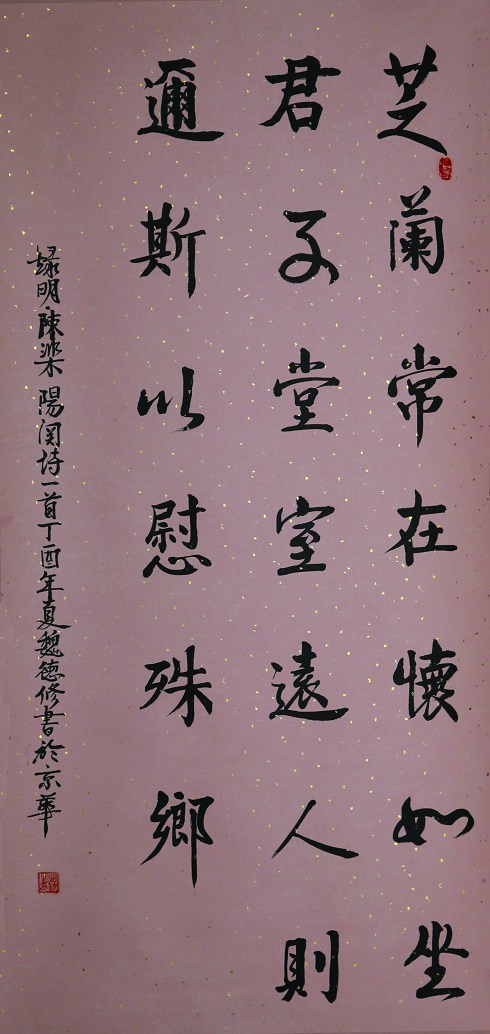 芝蘭常在懷如坐
君子堂室遠人則
邇斯以慰殊鄉
錄明陳棐陽関詩一首丁酉年夏魏德修書於京華